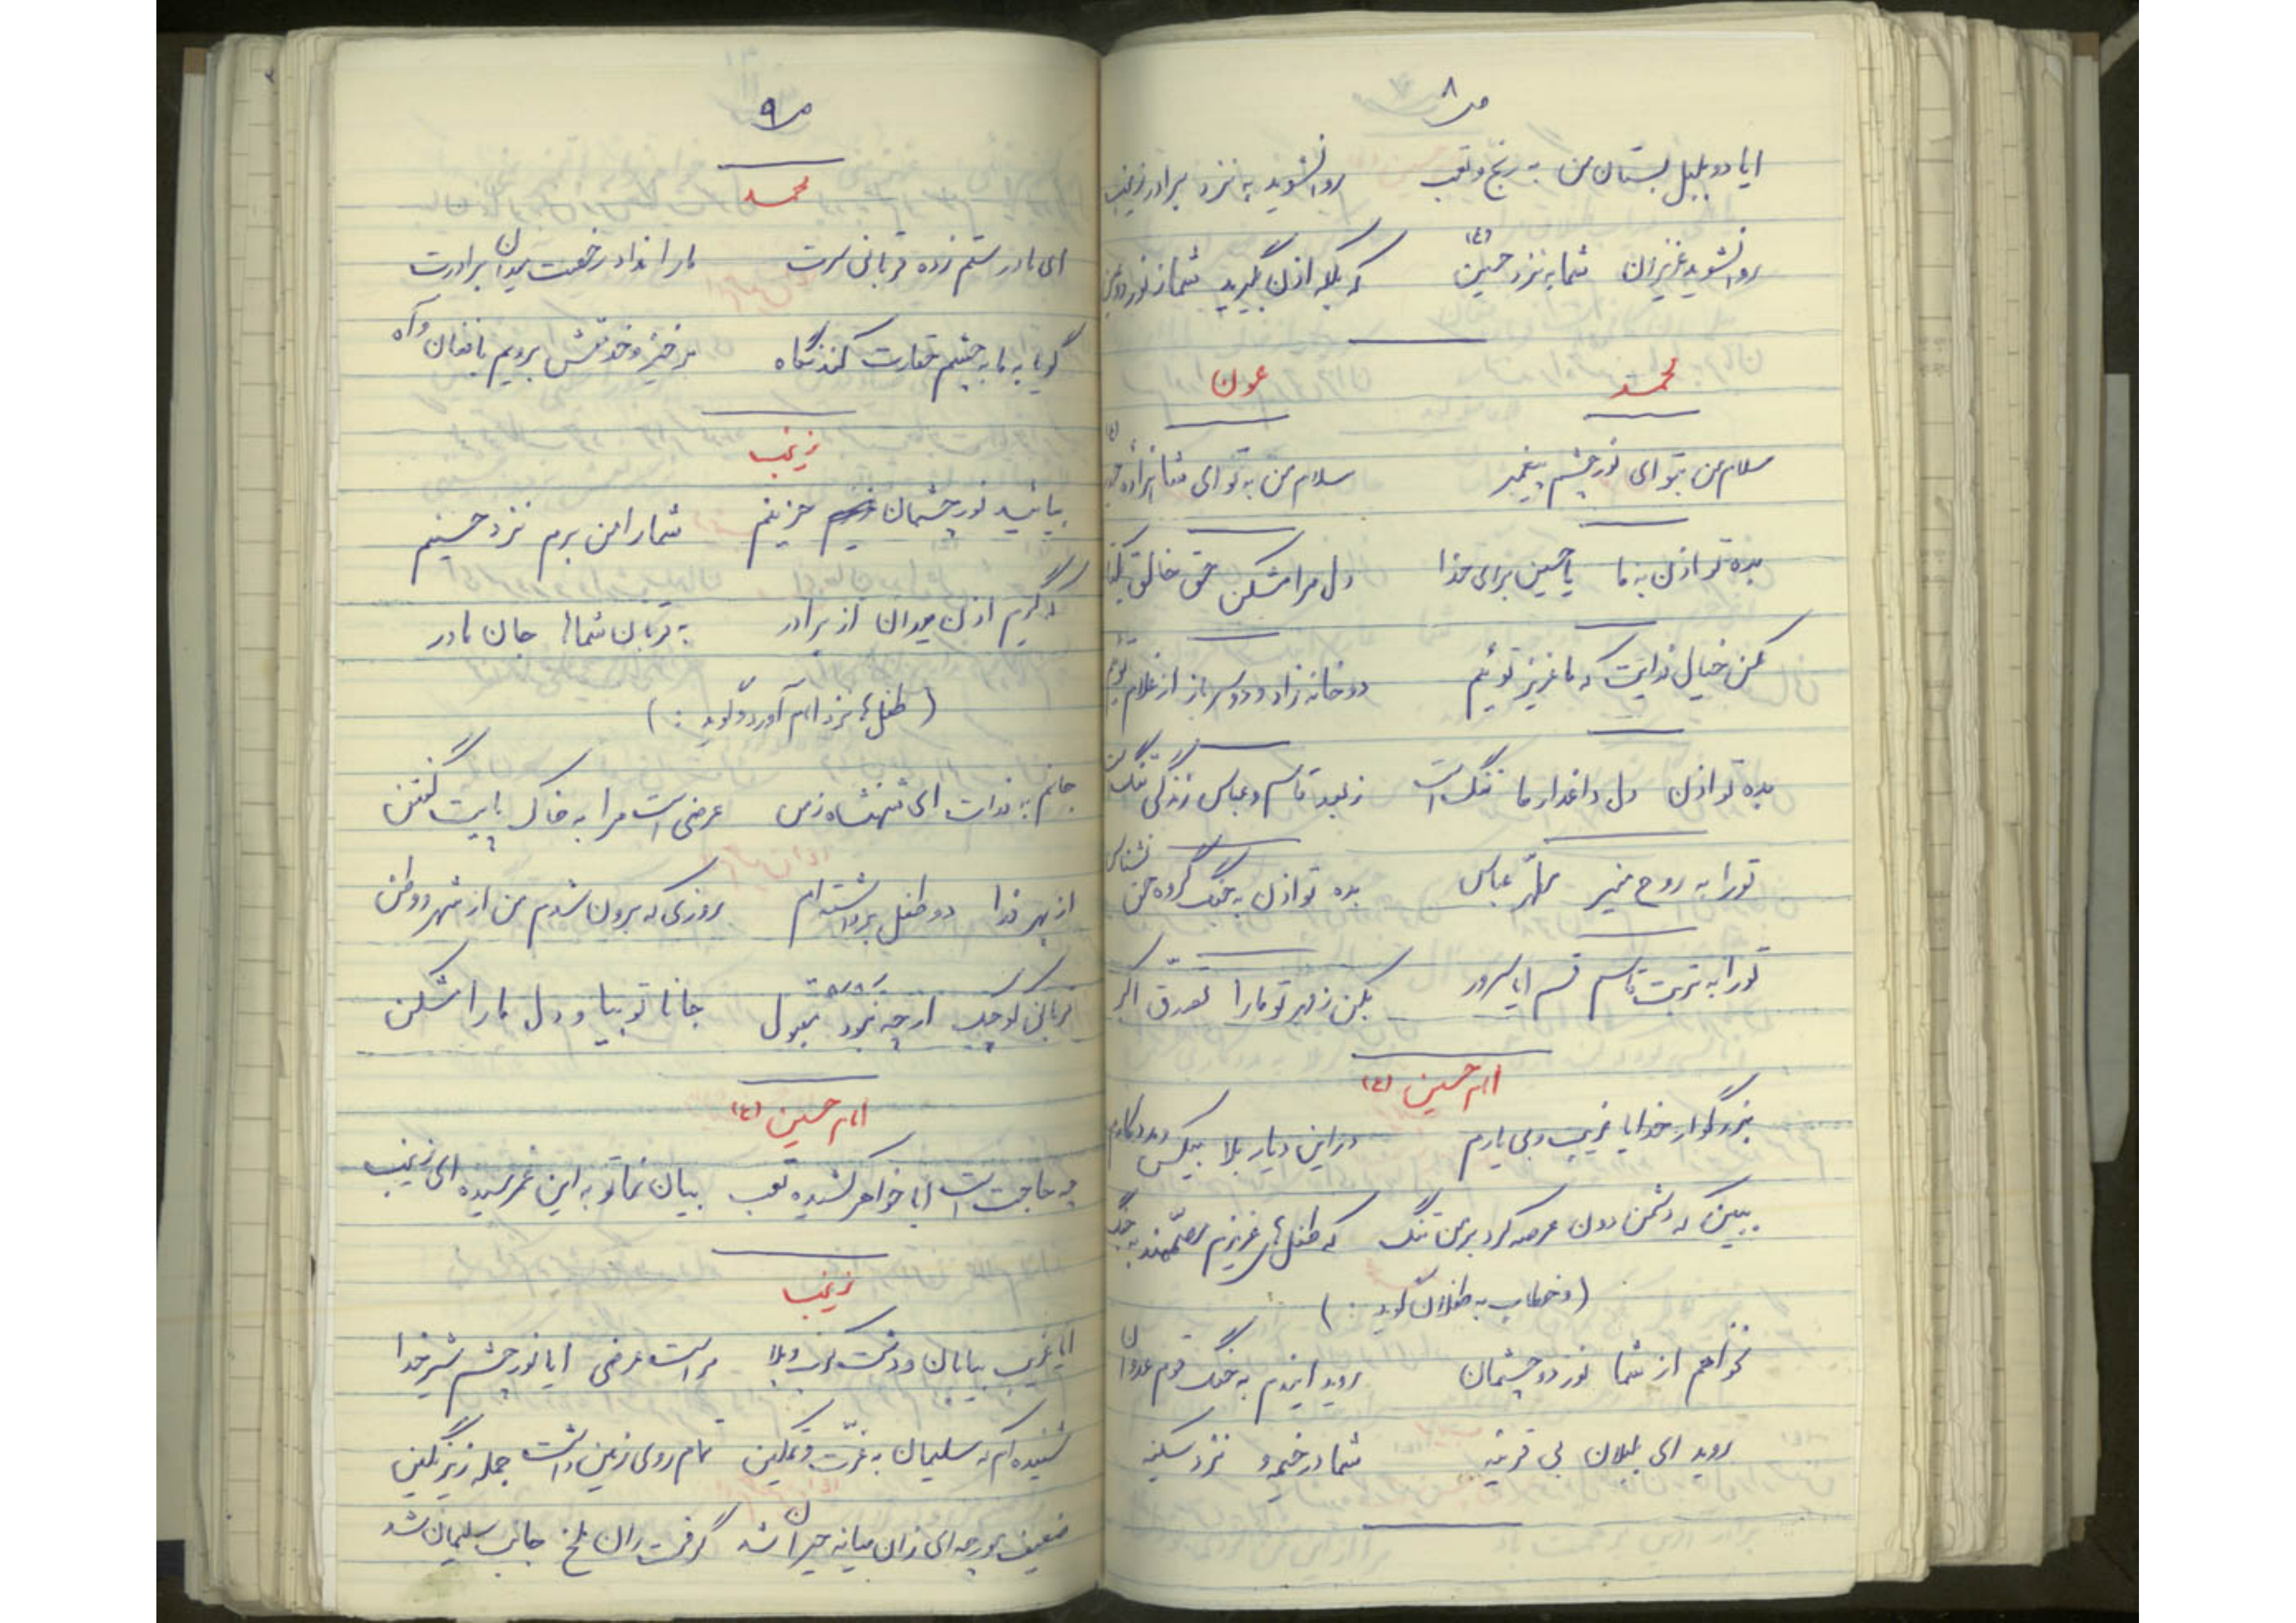 ص ۸
ایا دو بلبل بستان من به رنج و تعب روانشوید به نزد برادر زینب
روانشوید عزیزان شما به نزد حسین (ع) که بلکه اذن بگیرید شما ز نور دو عین
محمد عون
سلام من بتو ای نور چشم پیغمبر سلام من به تو ای
بده تو اذن به ما یا حسین برای خدا دل مرا مشکن حق خالق یکتا
مکن خیال فدایت که ما عزیز توئیم دو خانه زاد و دو سرباز از غلام توئیم
بده تو اذن دل داغدار ما تنگ است ز بعد قاسم و عباس زندگی ننگ است
تو را به روح منیر مطهّر عباس بده تو اذن به جنگ گروه حق نشناس
تو را به تربت قاسم قسم ایا سرور بکن ز مهر تو ما را تصدق اکبر
امام حسین (ع)
بزرگوار خدایا غریب و بی یارم در این دیار بلا بیکس و مددکارم
ببین که دشمن دون عرصه کرد بر من تنگ که طفل های عزیزم مصمّمند به جنگ
(و خطاب به طفلان گوید : )
نخواهم از شما نور دو چشمان روید ایندم به جنگ قوم عدوان
روید ای بلبلان بی قرینه شما در خیمه و نزد سکینه
ص ۹
محمد
ای مادر ستم زده قربانی سرت ما را نداد رخصت میدان برادرت
گویا به ما به چشم حقارت کند نگاه برخیز و خدمتش برویم با فغان و آه
زینب
بیائید نور چشمان حزینم شما را من برم نزد حسینم
که گیرم اذن میدان از برادر به قربان شماها جان مادر
(طفل ها نزد امام آورد و گوید : )
جانم به فدات ای شهنشاه زمن عرضی است مرا به خاک پایت گفتن
از بهر فدا دو طفل برداشته ام روزی که برون شدم من از شهر و وطن
قربانی کوچک ارچه نبود مقبول جانا تو بیا و دل ما را مشکن
امام حسین (ع)
چه حاجت است ایا خواهر کشیده تعب بیان نما تو به این غم رسیده ای زینب
زینب
ایا غریب بیابان و دشت کرب و بلا مراست عرضی ایا نور چشم شیر خدا
شنیده ام که سلیمان به عزّت و تمکین تمام روی زمین داشت جمله زیر نگین
ضعیف مورچه ای زان میانه حیران شد گرفت ران ملخ جانب سلیمان شد